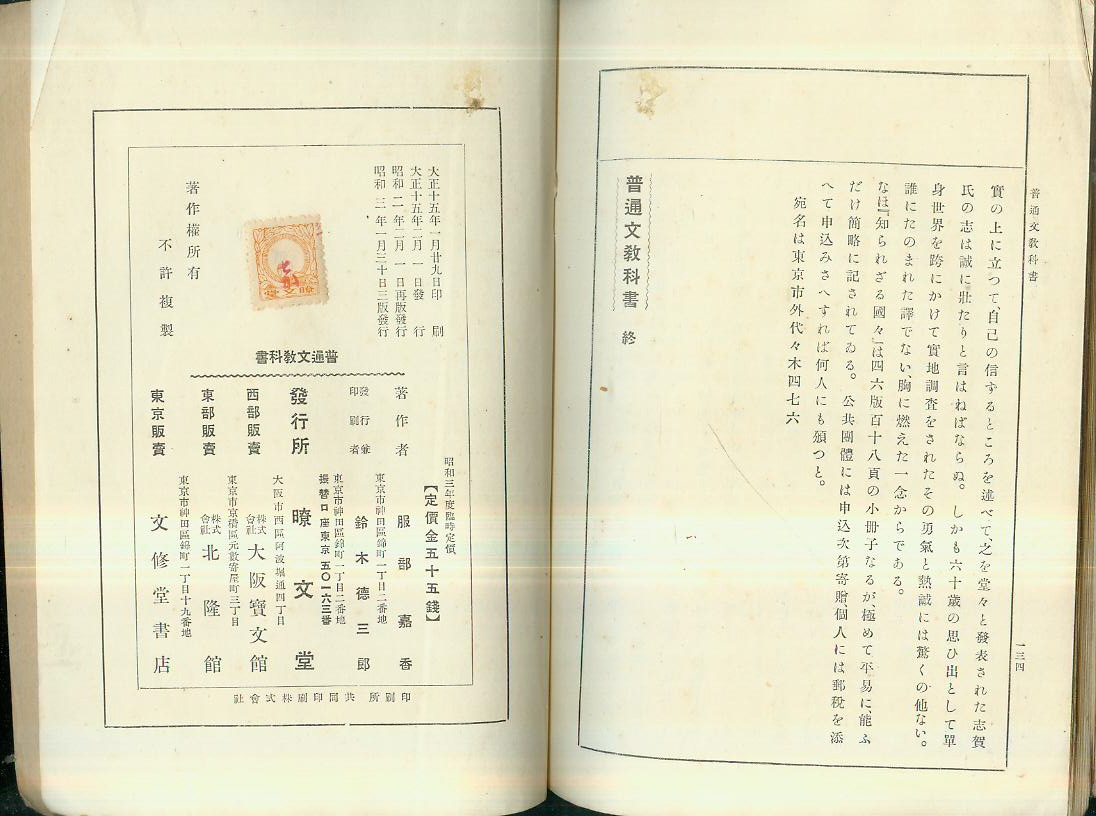 普通文教科書
一三四
實の上に立つて、自己の信ずるところを述べて、之を堂々と發表された志賀
氏の志は誠に壯たりと言はねばならぬ。しかも六十歳の思ひ出として單
身世界を跨にかけて實地調査をされたその勇氣と熱誠には驚くの他ない。
誰にたのまれた譯でない、胸に燃えた一念からである。
なほ『知られざる國々』は四六版百十八頁の小冊子なるが、極めて平易に、能ふ
だけ簡略に記されてゐる。公共團體には申込次第寄贈、個人には郵税を添
へて申込みさへすれば何人にも頒つと。
宛名は東京市外代々木四七六
普通文教科書 終
大正十五年一月廿九日印刷
大正十五年二月一日發行
昭和二年二月一日再版發行
昭和三年一月三十日三版發行
暸文堂
著作權所有
不許複製
普通文教科書
昭和三年度臨時定價
【定價金五十五錢】
著作者
服部嘉香
東京市神田區錦町一丁目二番地
發行兼印刷者
鈴木德三郎
東京市神田區錦町一丁目二番地
發行所
暸文堂
振替口座東京五〇一六三番
西部販賣
大阪市西區阿波堀通四丁目
株式會社 大阪寶文館
東部販賣
東京市京橋區元數寄屋町三丁目
株式會社 北隆館
東京販賣
東京市神田區錦町一丁目十九番地
文修堂書店
印刷所 共同印刷株式會社